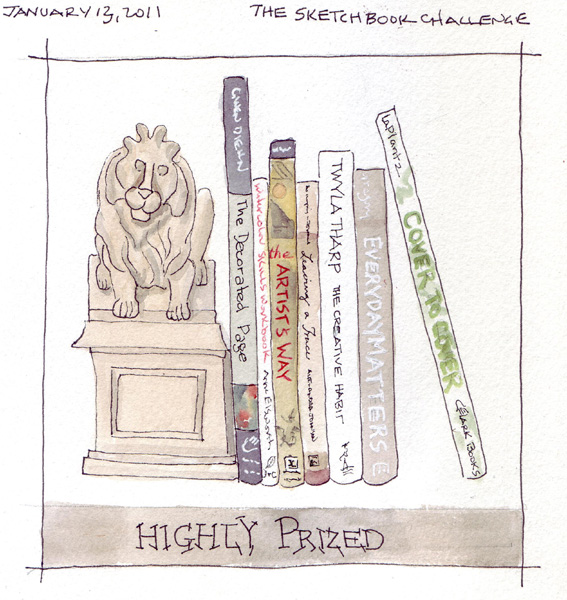 JANUARY 13, 2011
THE SKETCHBOOK CHALLENGE
GWEN DIEHN
The Decorated Page
WATERCOLOR SKILLS WORKBOOK
the
ARTIST'S WAY
Leaving a Trace
TWYLA THARP THE CREATIVE HABIT
EVERYDAY MATTERS
LaPlantz
COVER TO COVER
LARK BOOKS
HIGHLY PRIZED